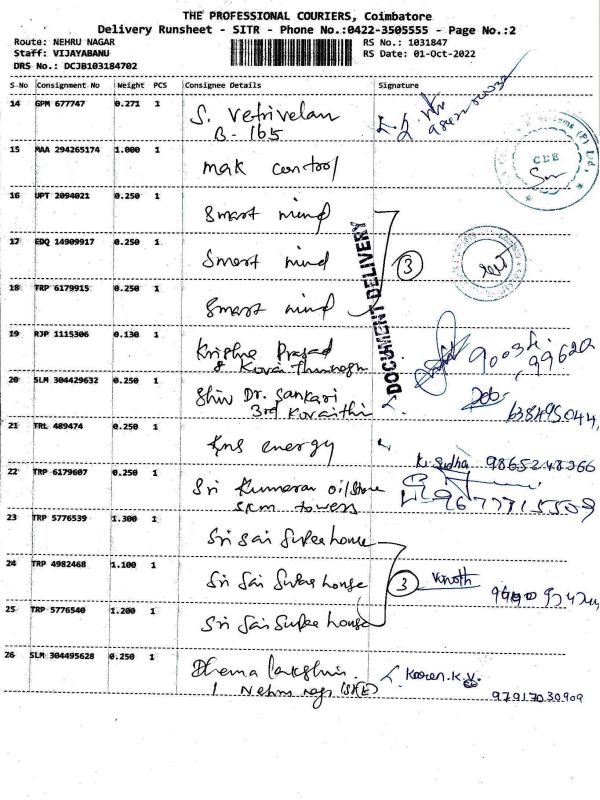 THE PROFESSIONAL COURIERS, Coimbatore
Delivery Runsheet - SITR - Phone No.:0422-3505555 - Page No.:2
Route: NEHRU NAGAR RS No.: 1031847
Staff: VIJAYABANU RS Date: 01-Oct-2022
DRS No.: DCJB103184702
S-No Consignment No Weight PCS Consignee Details Signature
14 GPM 677747 0.271 1 S. Vetrivelan
B-165
15 MAA 294265174 1.000 1 mak control
CBE
16 UPT 2094021 0.250 1 Smart mind
17 EDQ 14909917 0.250 1 Smart mind 3
18 TRP 6179915 0.250 1 Smart mind
DOCUMENT DELIVERY
19 RJP 1115306 0.130 1 Krishna Prasad
20 SLM 304429632 0.250 1 Shiv Dr. Sankari
3rd
21 TRL 489474 0.250 1 Kns energy
K. Sudha 9865248366
22 TRP 6179607 0.250 1 Sri Kumaran oil Store
SKM towers 9677715509
23 TRP 5776539 1.300 1 Sri Sai Super house
24 TRP 4982468 1.100 1 Sri Sai Super house 3 Vinoth
25 TRP 5776540 1.200 1 Sri Sai Super house
26 SLM 304495628 0.250 1 Dhana lakshmi
1 Nehru nagr
97917030909